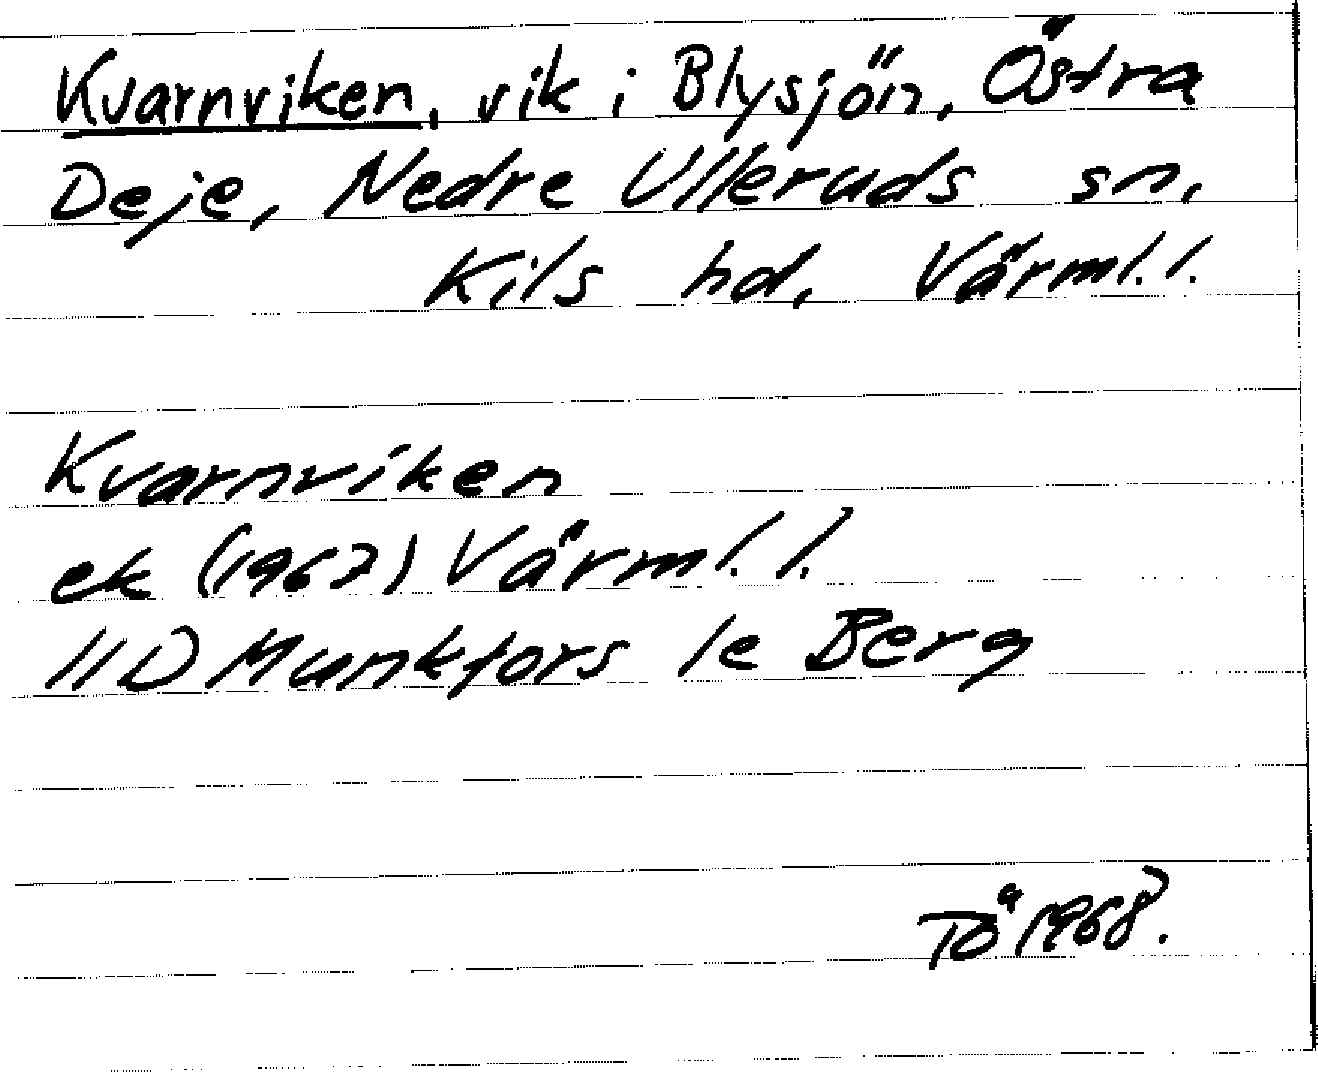 Kvarnviken, vik i Blysjön, Östra
Deje, Nedre Ulleruds sn,
Kils hd, Värml. l.
Kvarnviken
ek (1967) Värml. l.
11D Munkfors 1e Berg
TÖ 1968.